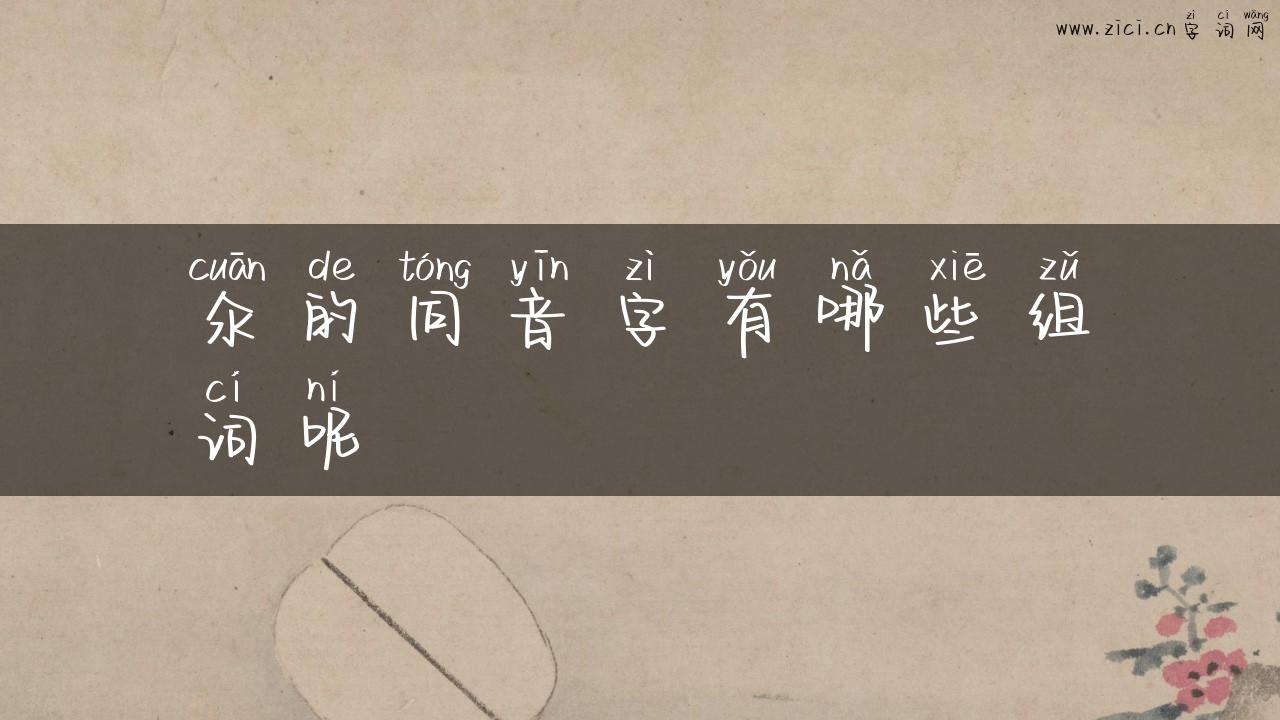 zì cí wǎng
www.zici.cn 字 词 网
cuān de tóng yīn zì yǒu nǎ xiē zǔ
汆 的 同 音 字 有 哪 些 组
cí ní
词 呢